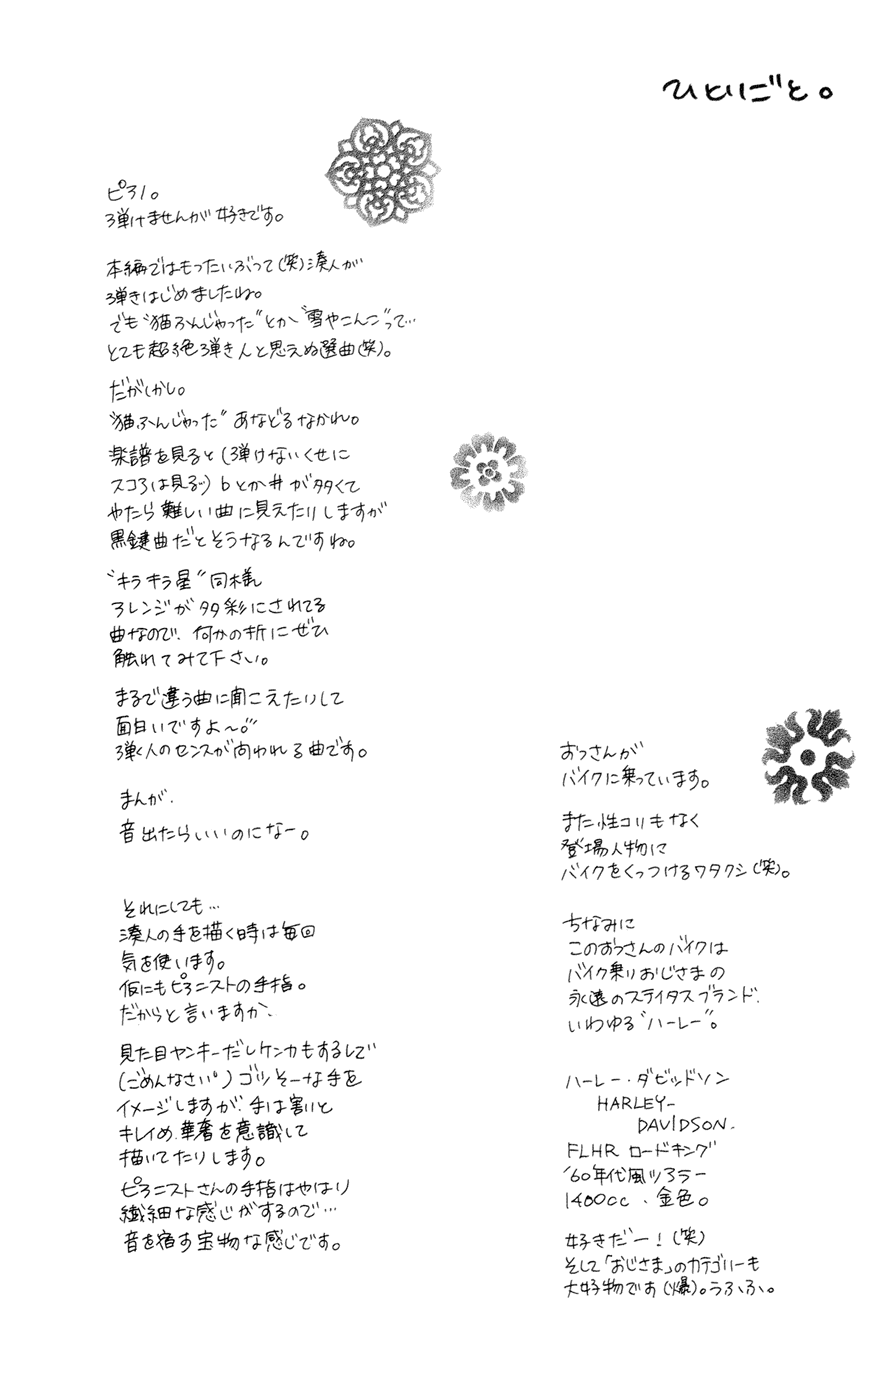 ひとりごと。
ピアノ。
弾けませんが好きです。
本編ではもったいぶって(笑)湊人が
弾きはじめましたね。
でも“猫ふんじゃった”とか“雪やこんこ”って…
とても超絶弾き人と思えぬ選曲(笑)。
だがしかし。
“猫ふんじゃった”あなどるなかれ。
楽譜を見ると(弾けないくせに
スコアは見るッ)♭とか#が多くて
やたら難しい曲に見えたりしますが
黒鍵曲だとそうなるんですね。
“キラキラ星”同様
アレンジが多彩にされてる
曲なので、何かの折にぜひ
触れてみて下さい。
まるで違う曲に聞こえたりして
面白いですよ〜。
弾く人のセンスが問われる曲です。
まんが、
音出たらいいのになー。
それにしても…
湊人の手を描く時は毎回
気を使います。
仮にもピアニストの手指。
だからと言いますか、
見た目ヤンキーだしケンカもするしで
(ごめんなさい°)ゴツそーな手を
イメージしますが、手は割いと
キレイめ、華奢を意識して
描いてたりします。
ピアニストさんの手指はやはり
繊細な感じがするので…
音を宿す宝物な感じです。
おっさんが
バイクに乗っています。
また性コリもなく
登場人物に
バイクをくっつけるワタクシ(笑)。
ちなみに
このおっさんのバイクは
バイク乗りおじさまの
永遠のステイタスブランド、
いわゆる“ハーレー”。
ハーレー・ダビッドソン
HARLEY-
DAVIDSON.
FLHR ロードキング
'60年代風ツアラー
1400cc、金色。
好きだー!(笑)
そして「おじさま」のカテゴリーも
大好物です(爆)。うふふ。